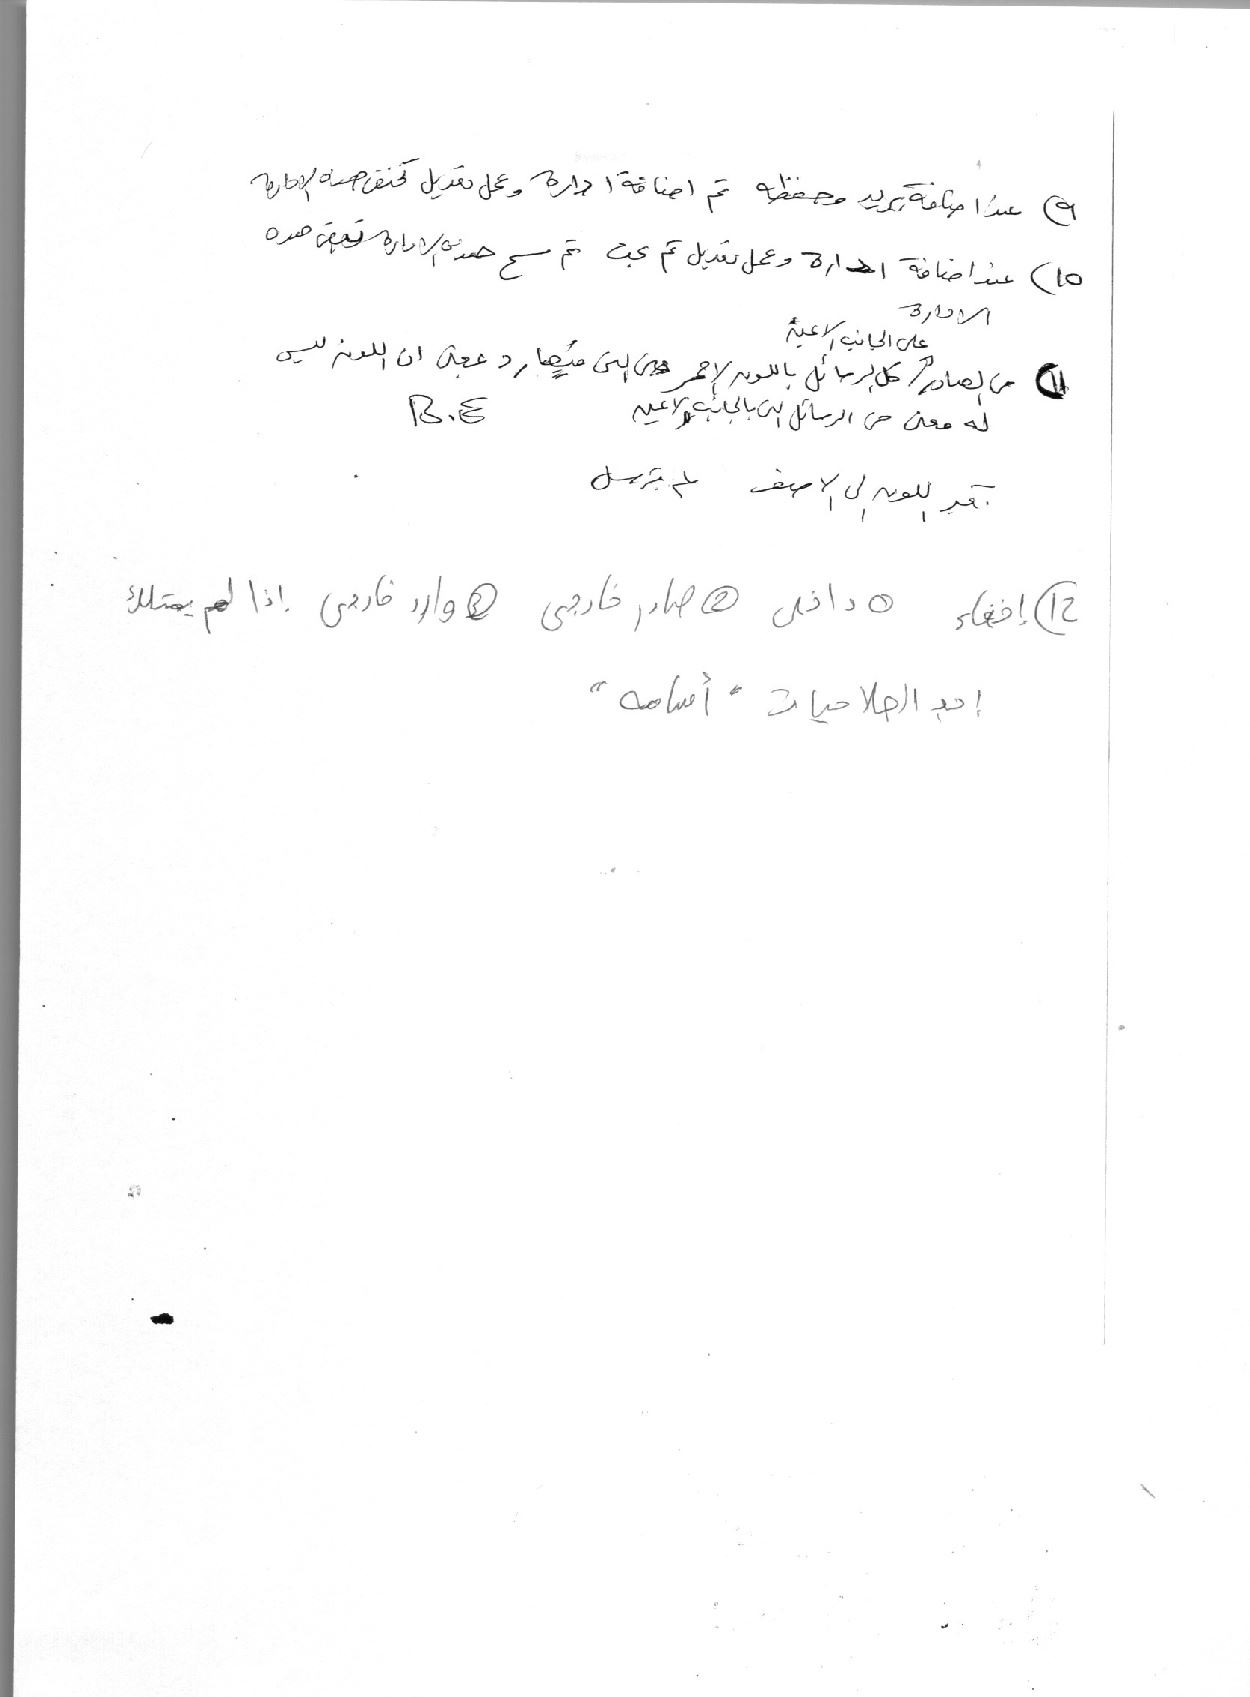 ٩) عند اضافة بريد وحفظه ثم اضافة ادارة وعمل تعديل تختفي هذه الادارة
١٠) عند اضافة ادارة وعمل تعديل ثم بحث ثم مسح هذه الادارة تبقى هذه
الادارة
على الجانب الايمن
١١) من الصادر كل الرسائل باللون الاحمر حتى التي فيها رد بمعنى ان اللون ليس
له معنى من الرسائل التي بالجانب الايمن B.E
تغير اللون الى الابيض لم يترسل
١٢) إخفاء ① داخلي ② صادر خارجي ③ وارد خارجي إذا لم يمتلك
إحد الصلاحيات "أسامه"